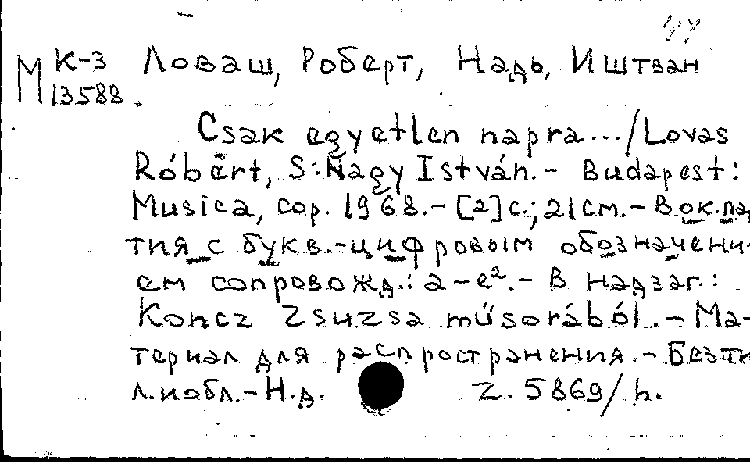 47
М К-3 Ловаш, Роберт, Надь, Иштван
13588.
Csak egyetlen napra.../Lovas
Róbert, S:Nagy István.- Budapest:
Musica, cop. 1968.-[2]с.; 21см.-Вок.пар
тия с букв.-цифровым обозначени-
ем сопровожд.: a-e².- В надзаг.:
Koncz Zsuzsa műsorából.- Ма-
териал для распространения.- Без тит.
л.и обл.- Н.д. Z. 5869/h.